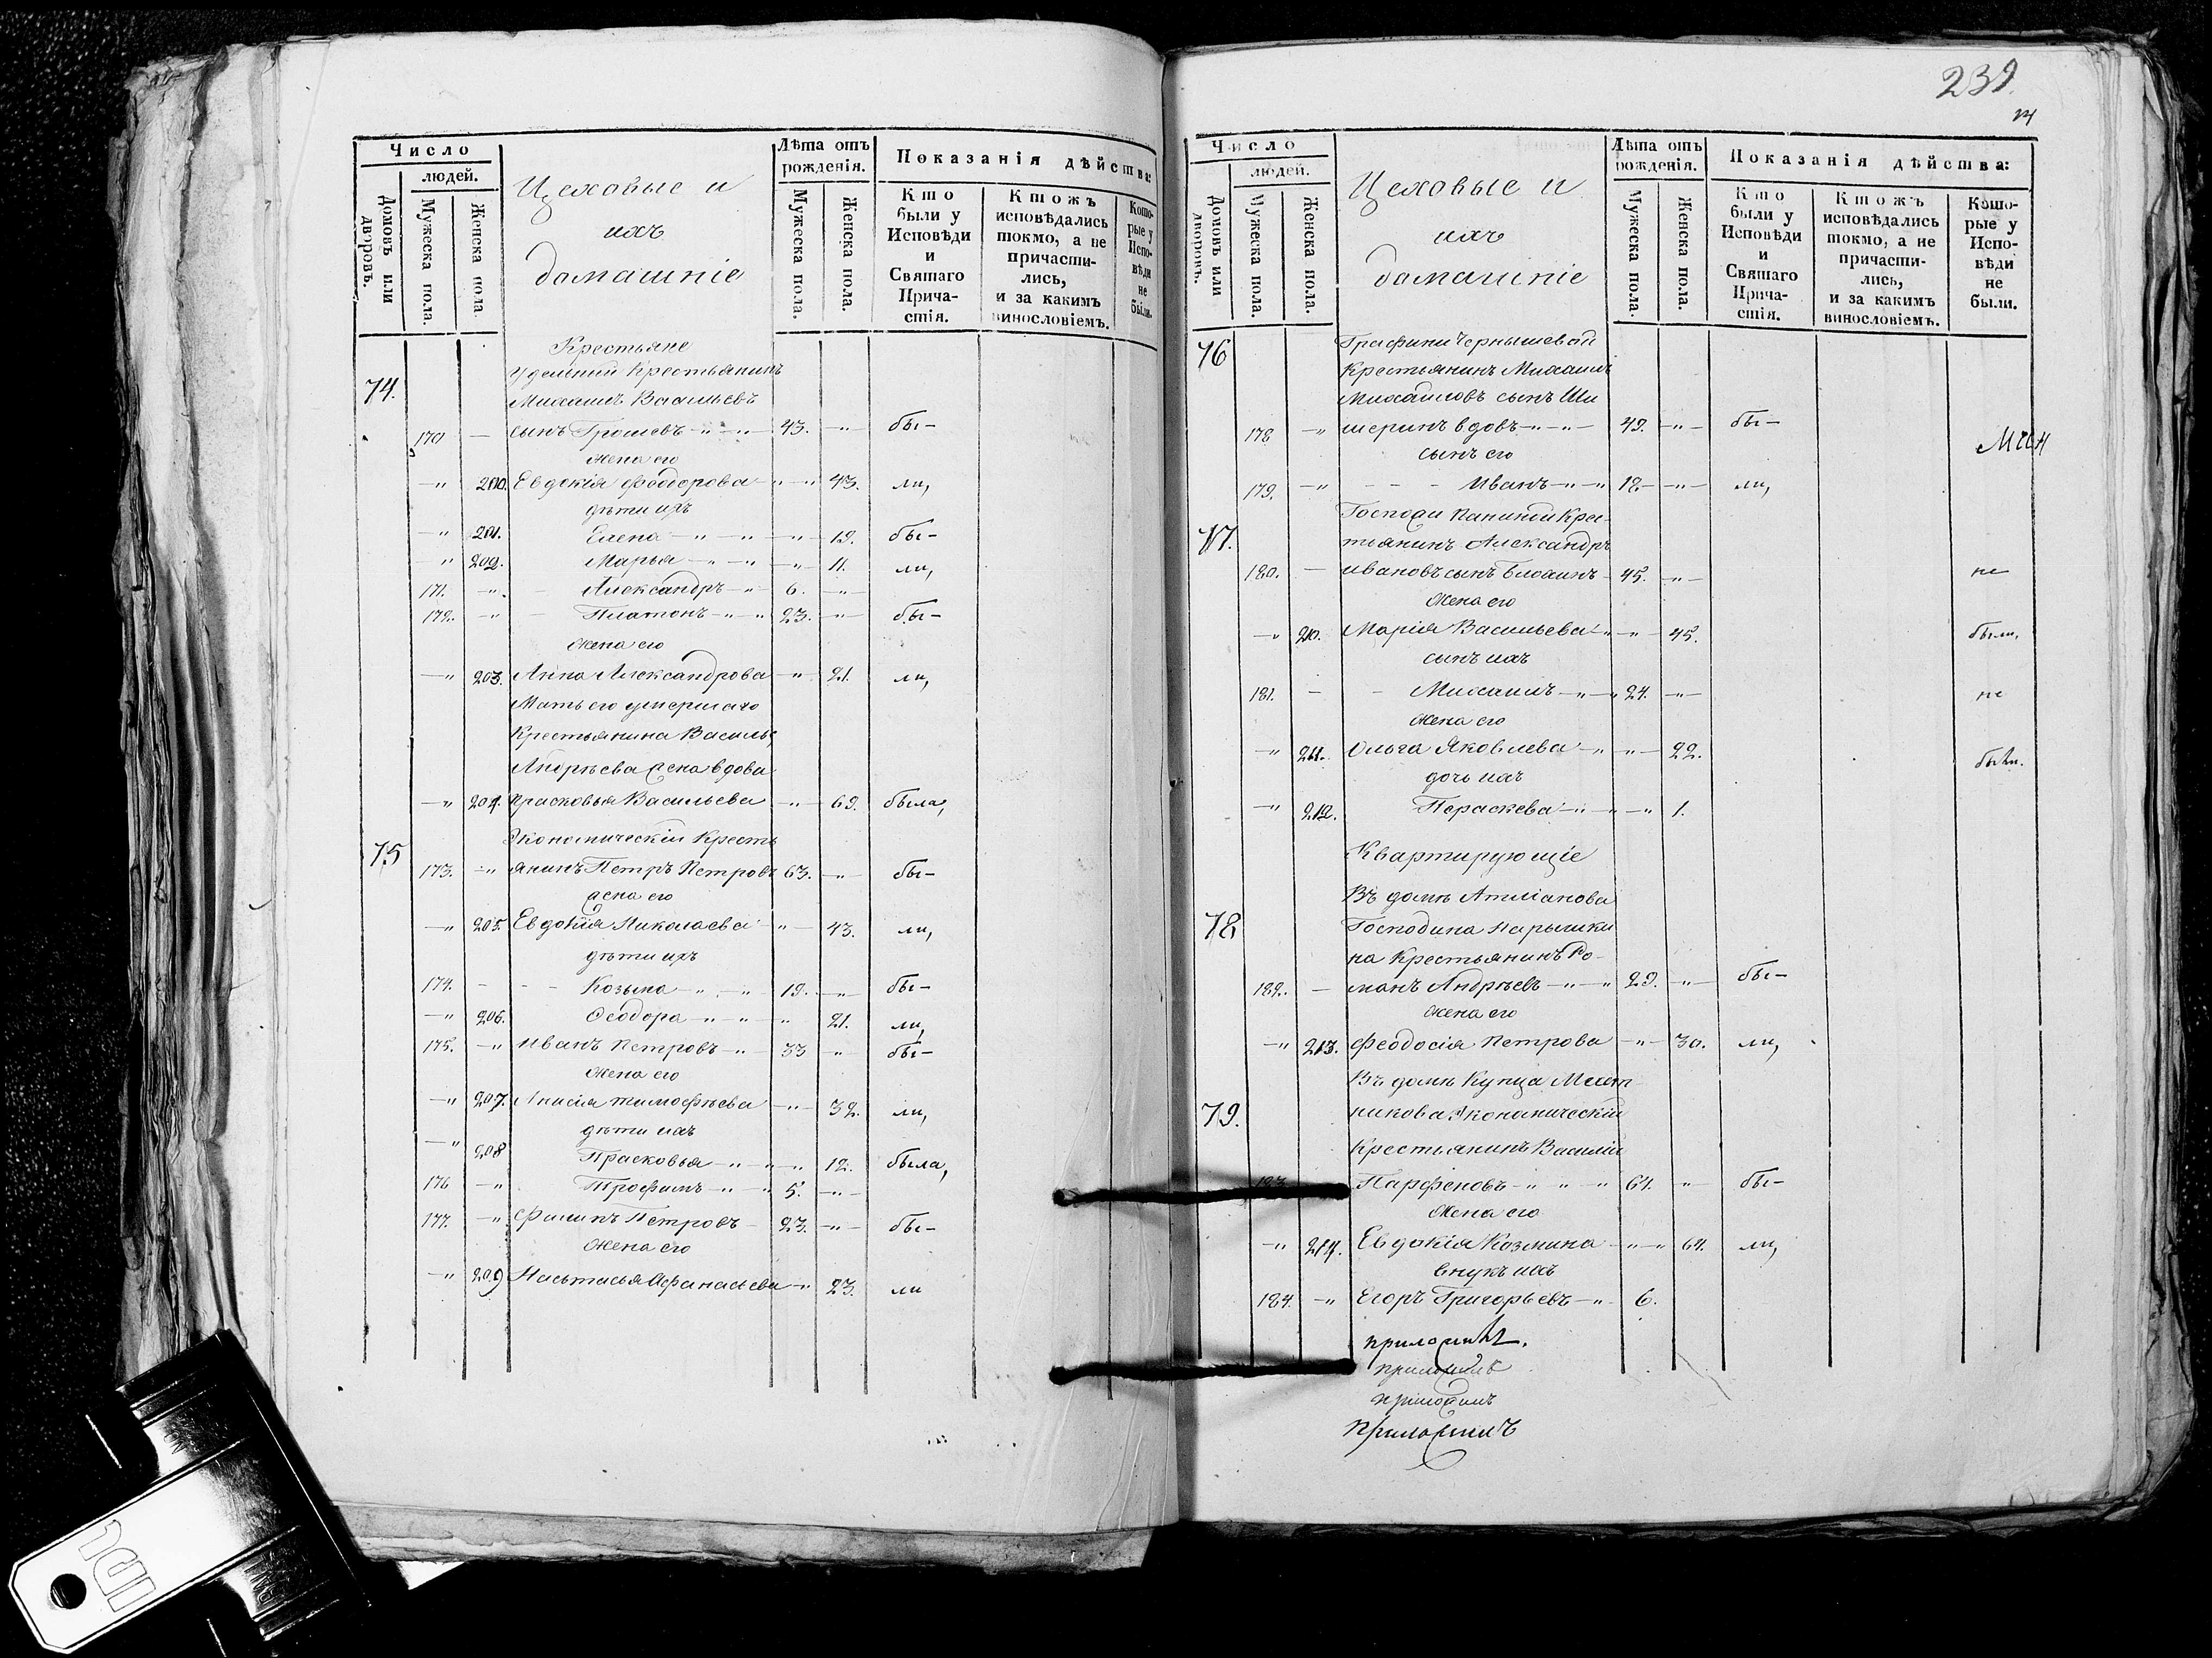 Число
людей.
Домовъ или дворовъ.
Мужеска пола.
Женска пола.
Цеховые и
ихъ
домашніе
Лѣта отъ рожденія.
Мужеска пола.
Женска пола.
Показанія дѣйства:
Кто были у Исповѣди и Святаго Прича-стія.
Ктожъ исповѣдались токмо, а не причасти-лись, и за какимъ винословіемъ.
Кото-рые у Испо-вѣди не были.
Крестьяне
74. Удельный Крестьянинъ
Михаилъ Васильевъ
170 — сынъ Грошевъ 43. бы-
жена его
200. Евдокія Феодорова 43. ли,
дѣти ихъ
201. Елена 19. бы-
202. Марья 11. ли,
171. Александръ 6.
172. Платонъ 23. бы-
жена его
203. Анна Александрова 21. ли,
Мать его умершаго
Крестьянина Василья
Андрѣева жена вдова
204. Прасковья Васильева 69. была,
75 Экономическій Кресть
173. янинъ Петръ Петровъ 63. бы-
жена его
205. Евдокія Николаева 43. ли,
дѣти ихъ
174. Козьма 19. бы-
206. Ѳеодора 21. ли,
175. Иванъ Петровъ 33 бы-
жена его
207. Анисія Тимофѣева 32. ли,
дѣти ихъ
208 Прасковья 12. была,
176 Трофимъ 5.
177. Филипъ Петровъ 23. бы-
жена его
209 Настасья Афанасьева 23. ли
239.
Число
людей.
Домовъ или дворовъ.
Мужеска пола.
Женска пола.
Цеховые и
ихъ
домашніе
Лѣта отъ рожденія.
Мужеска пола.
Женска пола.
Показанія дѣйства:
Кто были у Исповѣди и Святаго Прича-стія.
Ктожъ исповѣдались токмо, а не причасти-лись, и за какимъ винословіемъ.
Кото-рые у Испо-вѣди не были.
76 Графини Чернышевой
Крестьянинъ Михаилъ
Михайловъ сынъ Ши
178 шеринъ вдовъ 49. бы-
сынъ его
179. Иванъ 18. ли,
77. Госпожи Паниной Крес-
тьянинъ Александръ
180. Ивановъ сынъ Блохинъ 45. не
жена его
210. Марія Васильева 45. были,
сынъ ихъ
181. Михаилъ 24. не
жена его
211. Ольга Яковлева 22. были.
дочь ихъ
212. Параскева 1.
Квартирующіе
Въ домѣ
78 Господина Нарышки
на Крестьянинъ Ро-
182. манъ Андрѣевъ 29. бы-
жена его
213. Феодосія Петрова 30. ли,
Въ домѣ Купца
79. никова Экономическій
Крестьянинъ Василій
183 Парфеновъ 61. бы-
жена его
214. Евдокія Козмина 64. ли,
внукъ ихъ
184. Егоръ Григорьевъ 6.